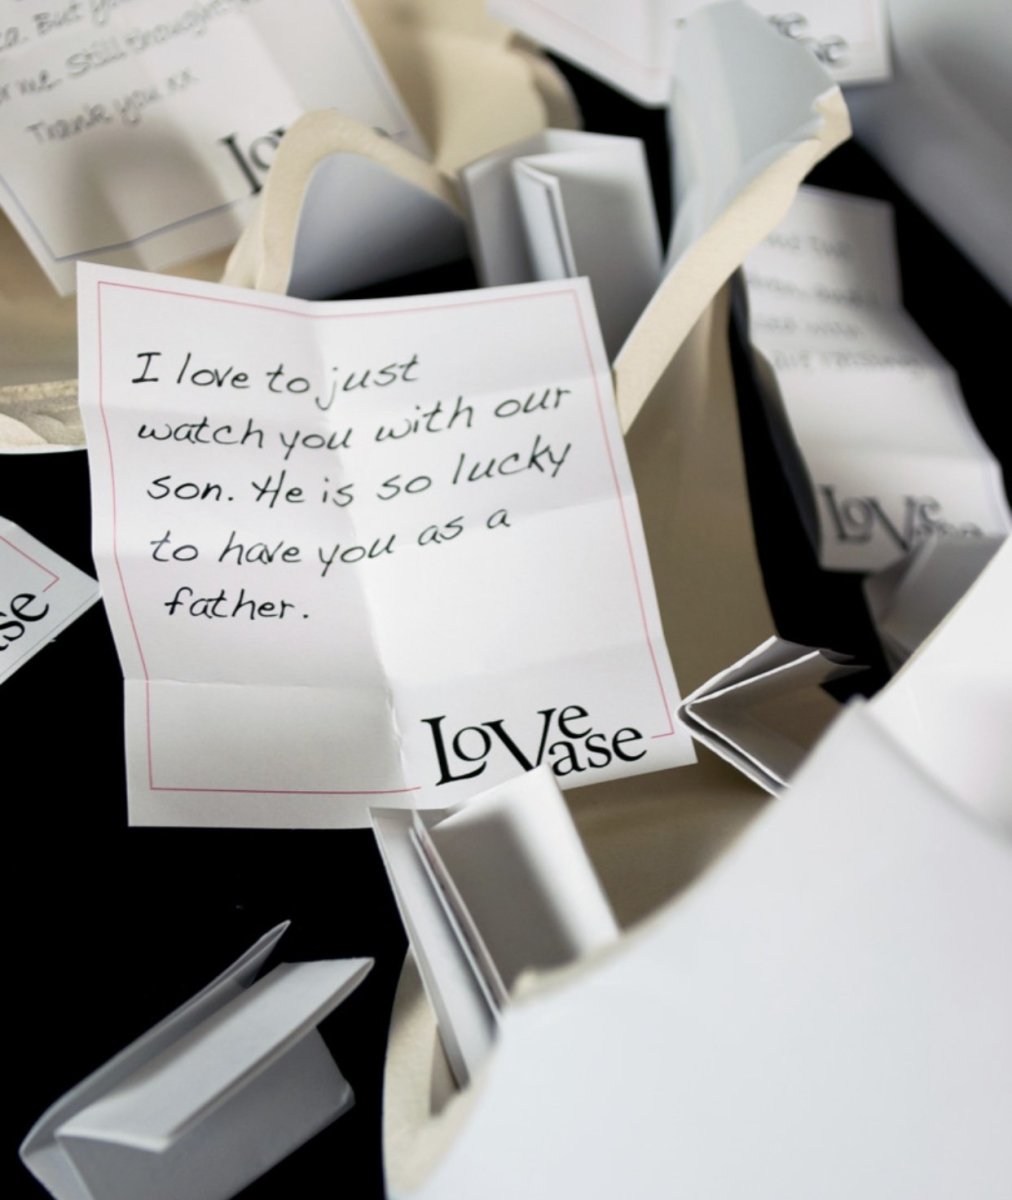 me. Still thought
Thank you xx
I love to just
watch you with our
son. He is so lucky
to have you as a
father.
LoVe
ase
LoVe
ase